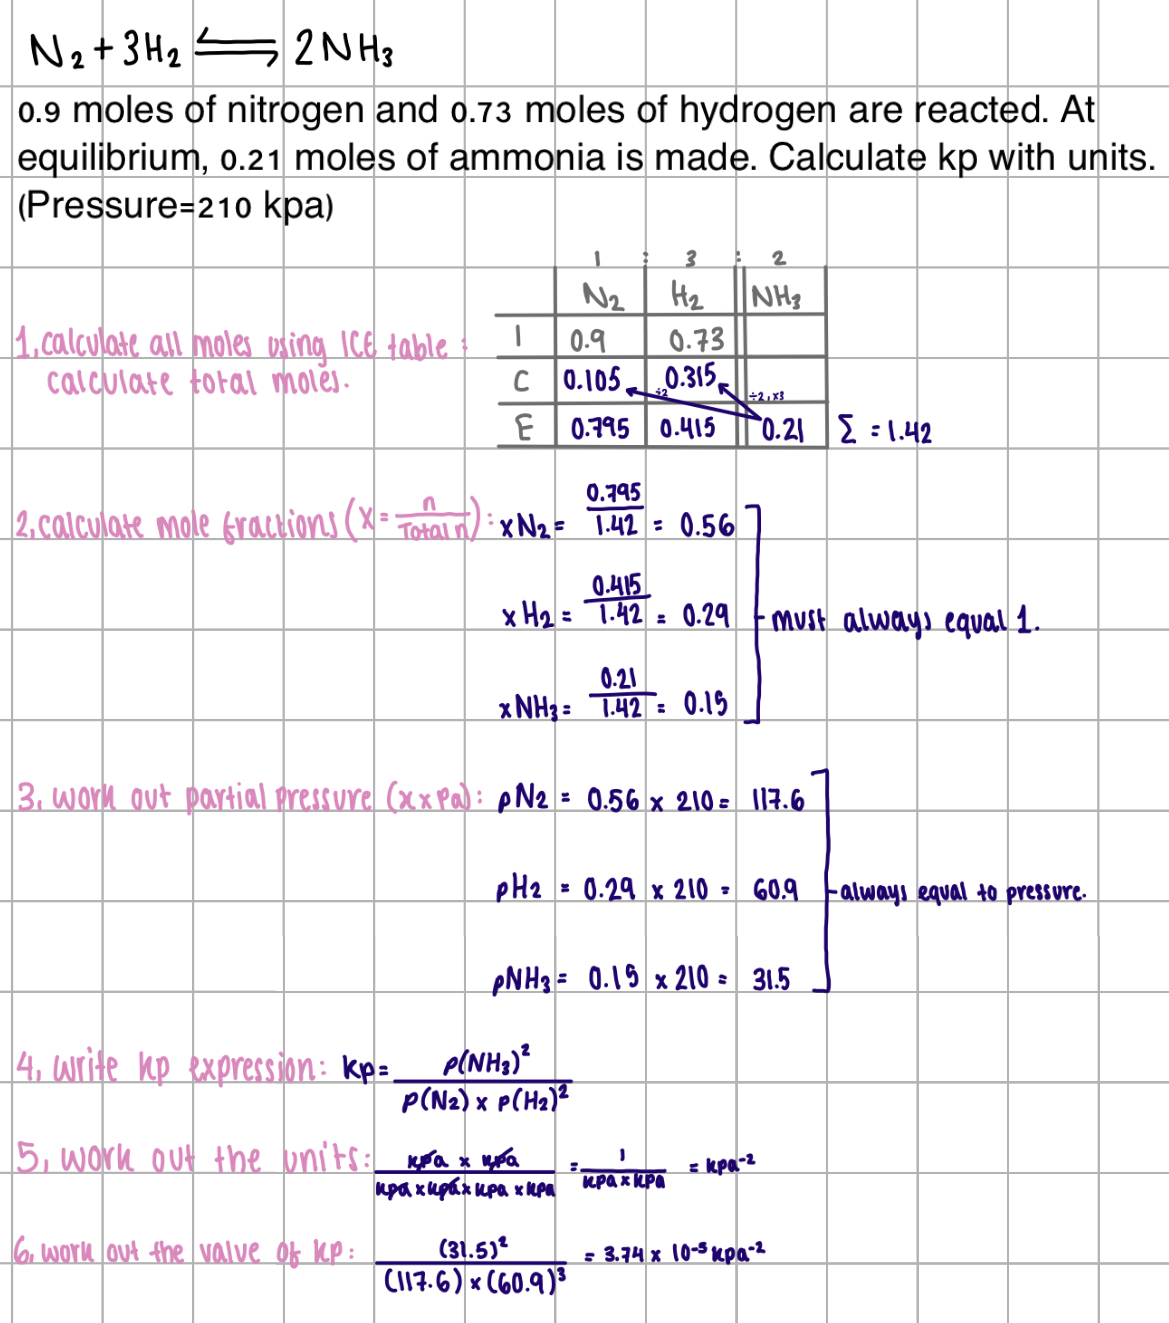 N₂ + 3H₂ ⇌ 2NH₃
0.9 moles of nitrogen and 0.73 moles of hydrogen are reacted. At
equilibrium, 0.21 moles of ammonia is made. Calculate kp with units.
(Pressure=210 kpa)
1 : 3 : 2
N₂ H₂ NH₃
1, calculate all moles using ICE table :
calculate total moles.
I 0.9 0.73
C 0.105 0.315
÷2 ÷2, x3
E 0.795 0.415 0.21 Σ = 1.42
2, calculate mole fractions (x = n/Total n) :
xN₂ = 0.795/1.42 = 0.56
xH₂ = 0.415/1.42 = 0.29
must always equal 1.
xNH₃ = 0.21/1.42 = 0.15
3, work out partial pressure (x x Pa) : pN₂ = 0.56 x 210 = 117.6
pH₂ = 0.29 x 210 = 60.9
always equal to pressure.
pNH₃ = 0.15 x 210 = 31.5
4, write kp expression: kp = p(NH₃)²/p(N₂) x p(H₂)²
5, work out the units: kpa x kpa/kpa x kpa x kpa x kpa = 1/kpa x kpa = kpa⁻²
6, work out the value of kp: (31.5)²/(117.6) x (60.9)³ = 3.74 x 10⁻⁵ kpa⁻²